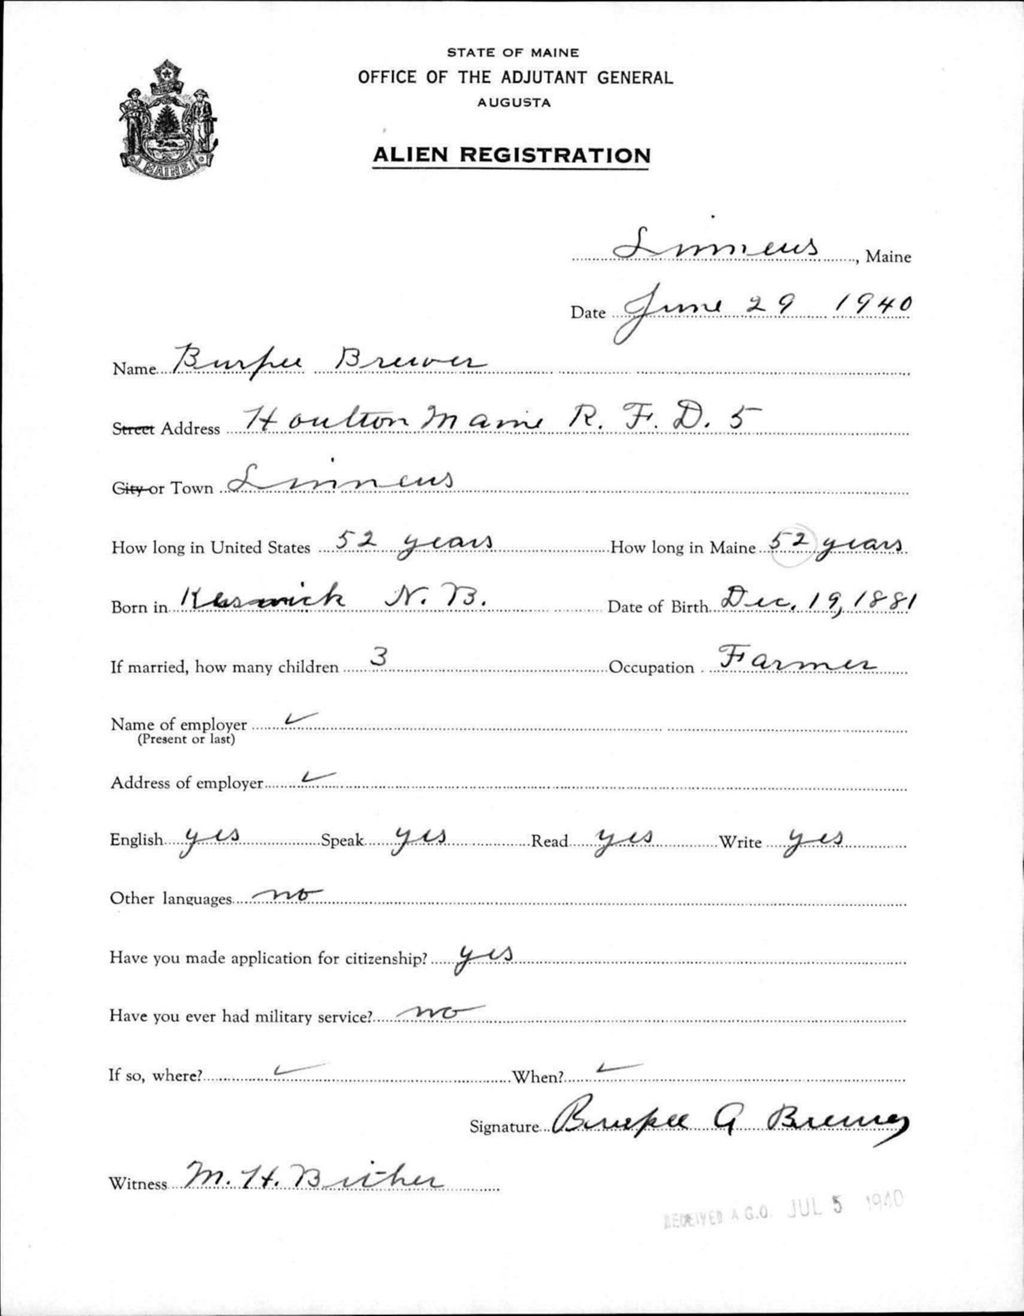 STATE OF MAINE
OFFICE OF THE ADJUTANT GENERAL
AUGUSTA
ALIEN REGISTRATION
MAINE
Linneus, Maine
Date June 29 1940
Name Burpee Brewer
Street Address Houlton Maine R. F. D. 5
City or Town Linneus
How long in United States 52 years How long in Maine 52 years
Born in Keswick N. B. Date of Birth Dec. 19, 1881
If married, how many children 3 Occupation Farmer
Name of employer ✓
(Present or last)
Address of employer ✓
English yes Speak yes Read yes Write yes
Other languages no
Have you made application for citizenship? yes
Have you ever had military service? no
If so, where? ✓ When? ✓
Signature Burpee A Brewer
Witness M. H. Bither
RECEIVED A.G.O. JUL 5 1940